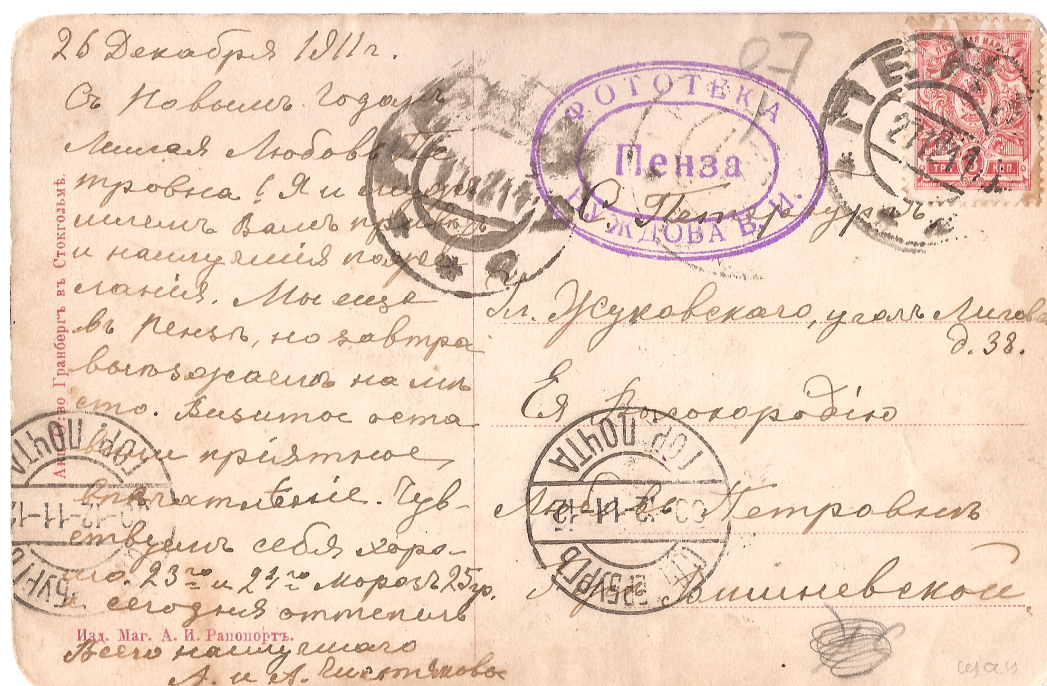 26 Декабря 1911 г.
Съ Новымъ Годомъ
Милая Любовь Пе
тровна! Я и
шлемъ Вамъ привѣтъ
и наилучшія поже
ланія. Мы еще
въ Пензѣ, но завтра
выѣзжаемъ на мѣ
сто. Визитом оста
вили пріятное
впечатлѣніе. Чув
ствуемъ себя хоро-
шо. 23го и 24го морозъ 25 гр.
и сегодня оттепель
Всего наилучшаго
А. и А. Чистяковы
Изд. Маг. А. И. Рапопортъ.
Акц. О-во Гранбергъ въ Стокгольмѣ.
07
ФОТОТЕКА
Пенза
НУЖДОВА В. И.
ПОЧТОВАЯ МАРКА
ТРИ КОП.
ПЕНЗА
С. Петербургъ
Ул. Жуковскаго, уголъ Лигов.
д. 38.
Ея Высокородію
Любовь Петровнѣ
Вишневской
ГОР. ПОЧТА
-12-11-12
БУРГЪ
ГОР. ПОЧТА
-12-11-12
С.П.ЕТЕРБУРГЪ